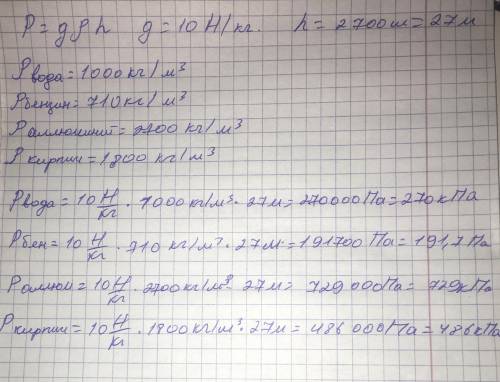 P = gρh   g = 10 Н/кг.   h = 2700см = 27м
ρвода = 1000 кг/м³
ρбензин = 710 кг/м³
ρаллюминий = 2700 кг/м³
ρкирпич = 1800 кг/м³
Pвода = 10 Н/кг · 1000 кг/м³ · 27м = 270000 Па = 270 кПа
Pбен = 10 Н/кг · 710 кг/м³ · 27м = 191700 Па = 191,7 Па
Pаллюм = 10 Н/кг · 2700 кг/м³ · 27м = 729 000 Па = 729 кПа
Pкирпич = 10 Н/кг · 1800 кг/м³ · 27м = 486 000 Па = 486 кПа